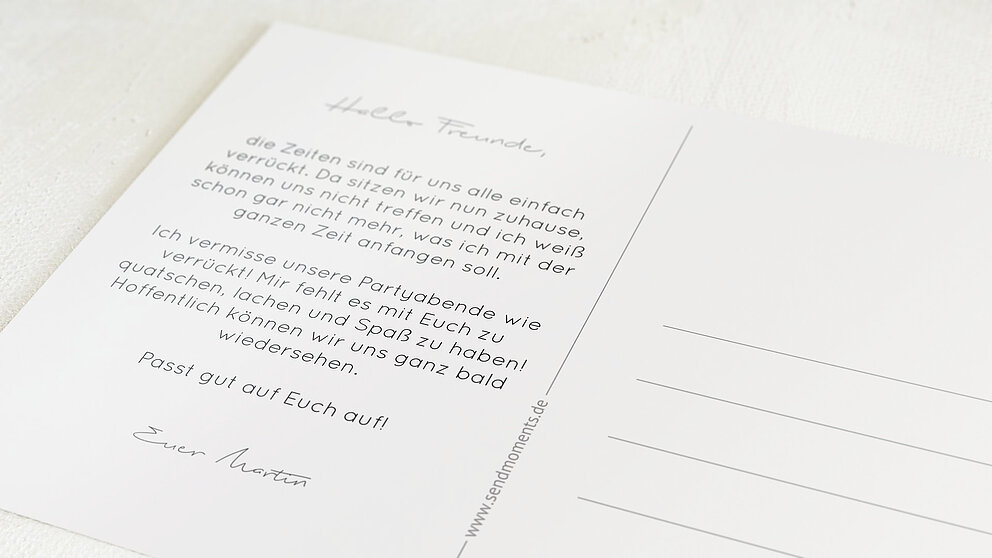 Hallo Freunde,
die Zeiten sind für uns alle einfach
verrückt. Da sitzen wir nun zuhause,
können uns nicht treffen und ich weiß
schon gar nicht mehr, was ich mit der
ganzen Zeit anfangen soll.
Ich vermisse unsere Partyabende wie
verrückt! Mir fehlt es mit Euch zu
quatschen, lachen und Spaß zu haben!
Hoffentlich können wir uns ganz bald
wiedersehen.
Passt gut auf Euch auf!
Euer Martin
www.sendmoments.de